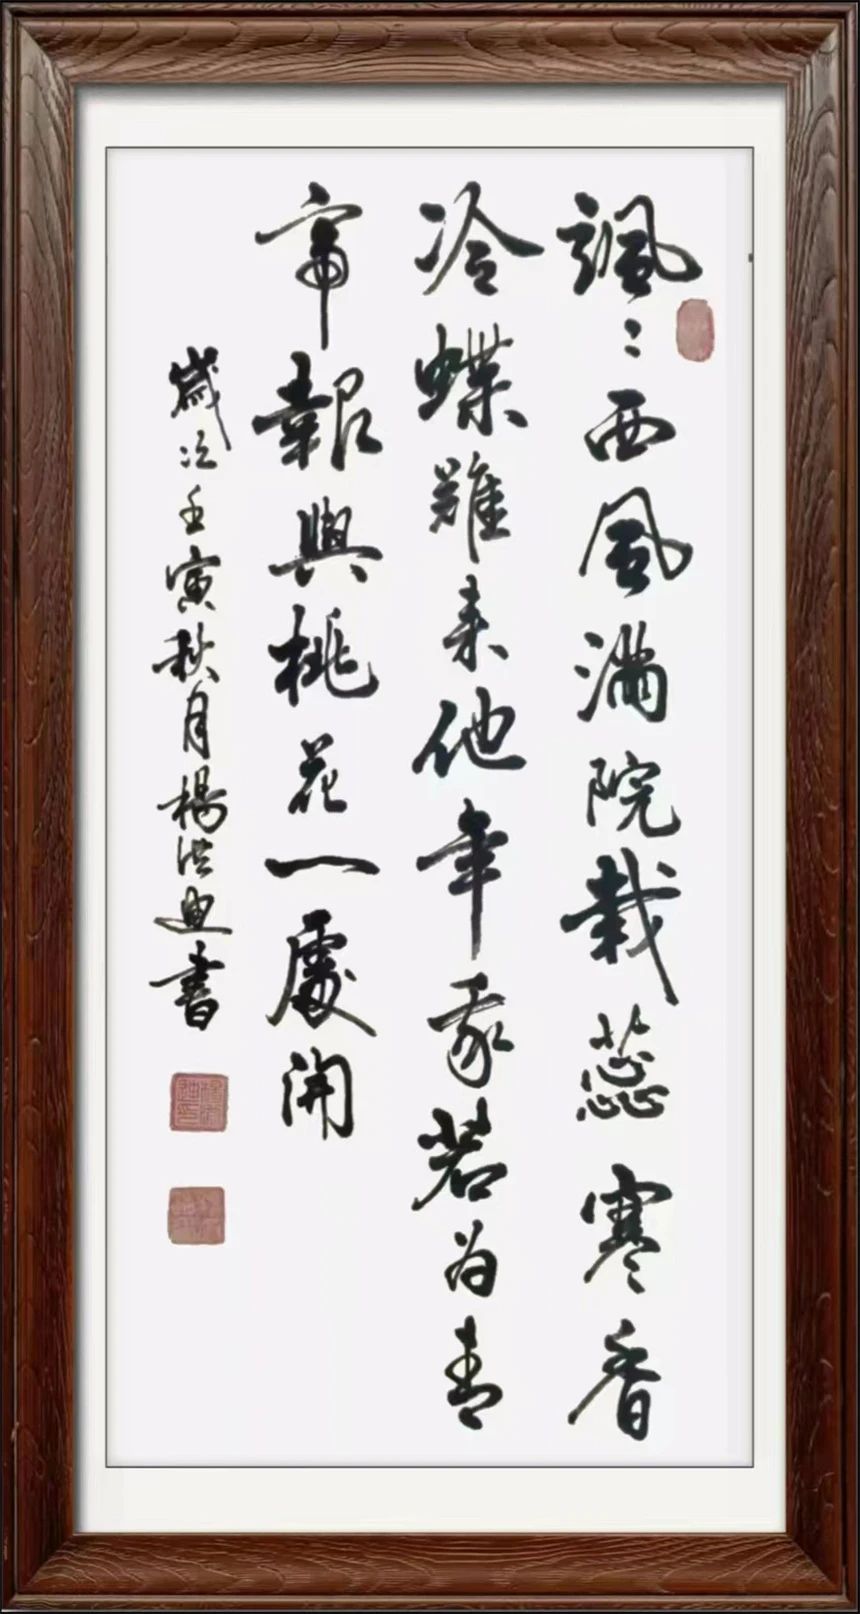 颯〻西風滿院栽蕊寒香
冷蝶難来他年我若为青
帝報與桃花一處開
歲次壬寅秋月楊洪迪書